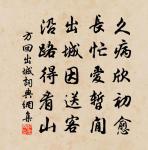 久病欣初愈
長忙愛暫閒
出城因送客
沿路得看山
方回出城詞典網集